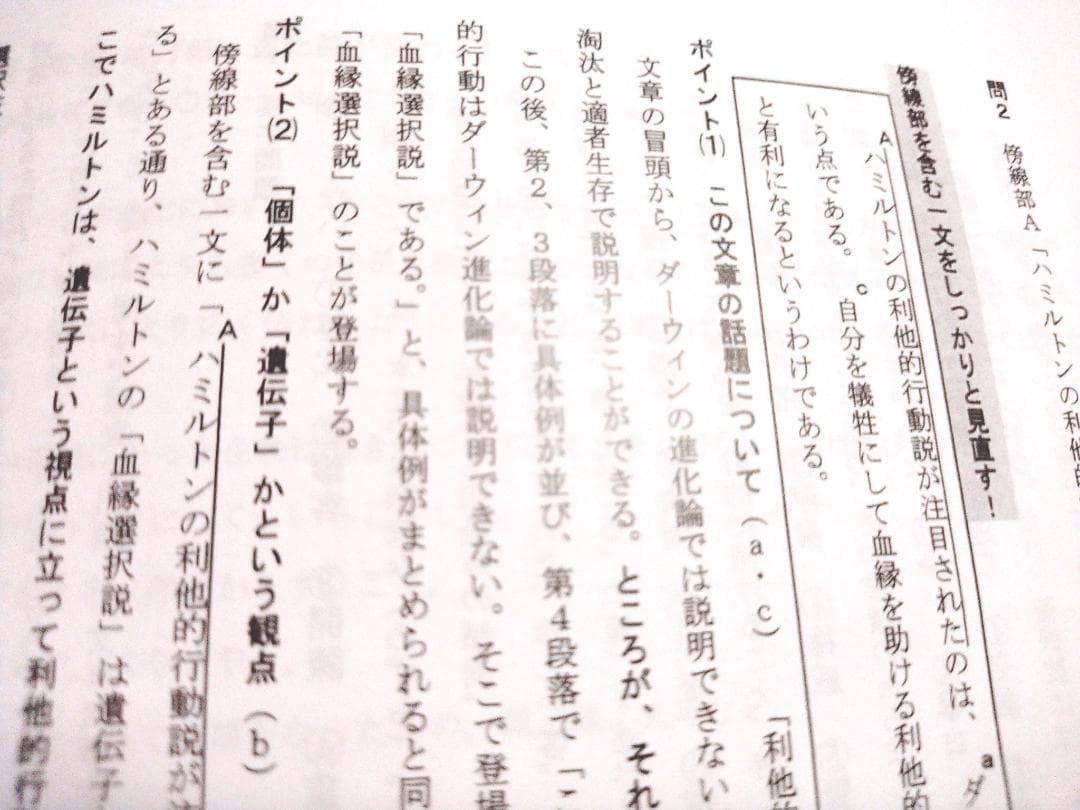 問2 傍線部A「ハミルトンの利他的
傍線部を含む一文をしっかりと見直す！
A ハミルトンの利他的行動説が注目されたのは、a ダ
いう点である。c 自分を犠牲にして血縁を助ける利他的
と有利になるというわけである。
ポイント(1) この文章の話題について（a・c）「利他的
文章の冒頭から、ダーウィンの進化論では説明できない
淘汰と適者生存で説明することができる。ところが、それ
この後、第2、3段落に具体例が並び、第4段落で「こ
的行動はダーウィン進化論では説明できない。そこで登場
「血縁選択説」である。」と、具体例がまとめられると同
「血縁選択説」のことが登場する。
ポイント(2) 「個体」か「遺伝子」かという観点（b）
傍線部を含む一文に「A ハミルトンの利他的行動説が
る」とある通り、ハミルトンの「血縁選択説」は遺伝子
こでハミルトンは、遺伝子という視点に立って利他的行